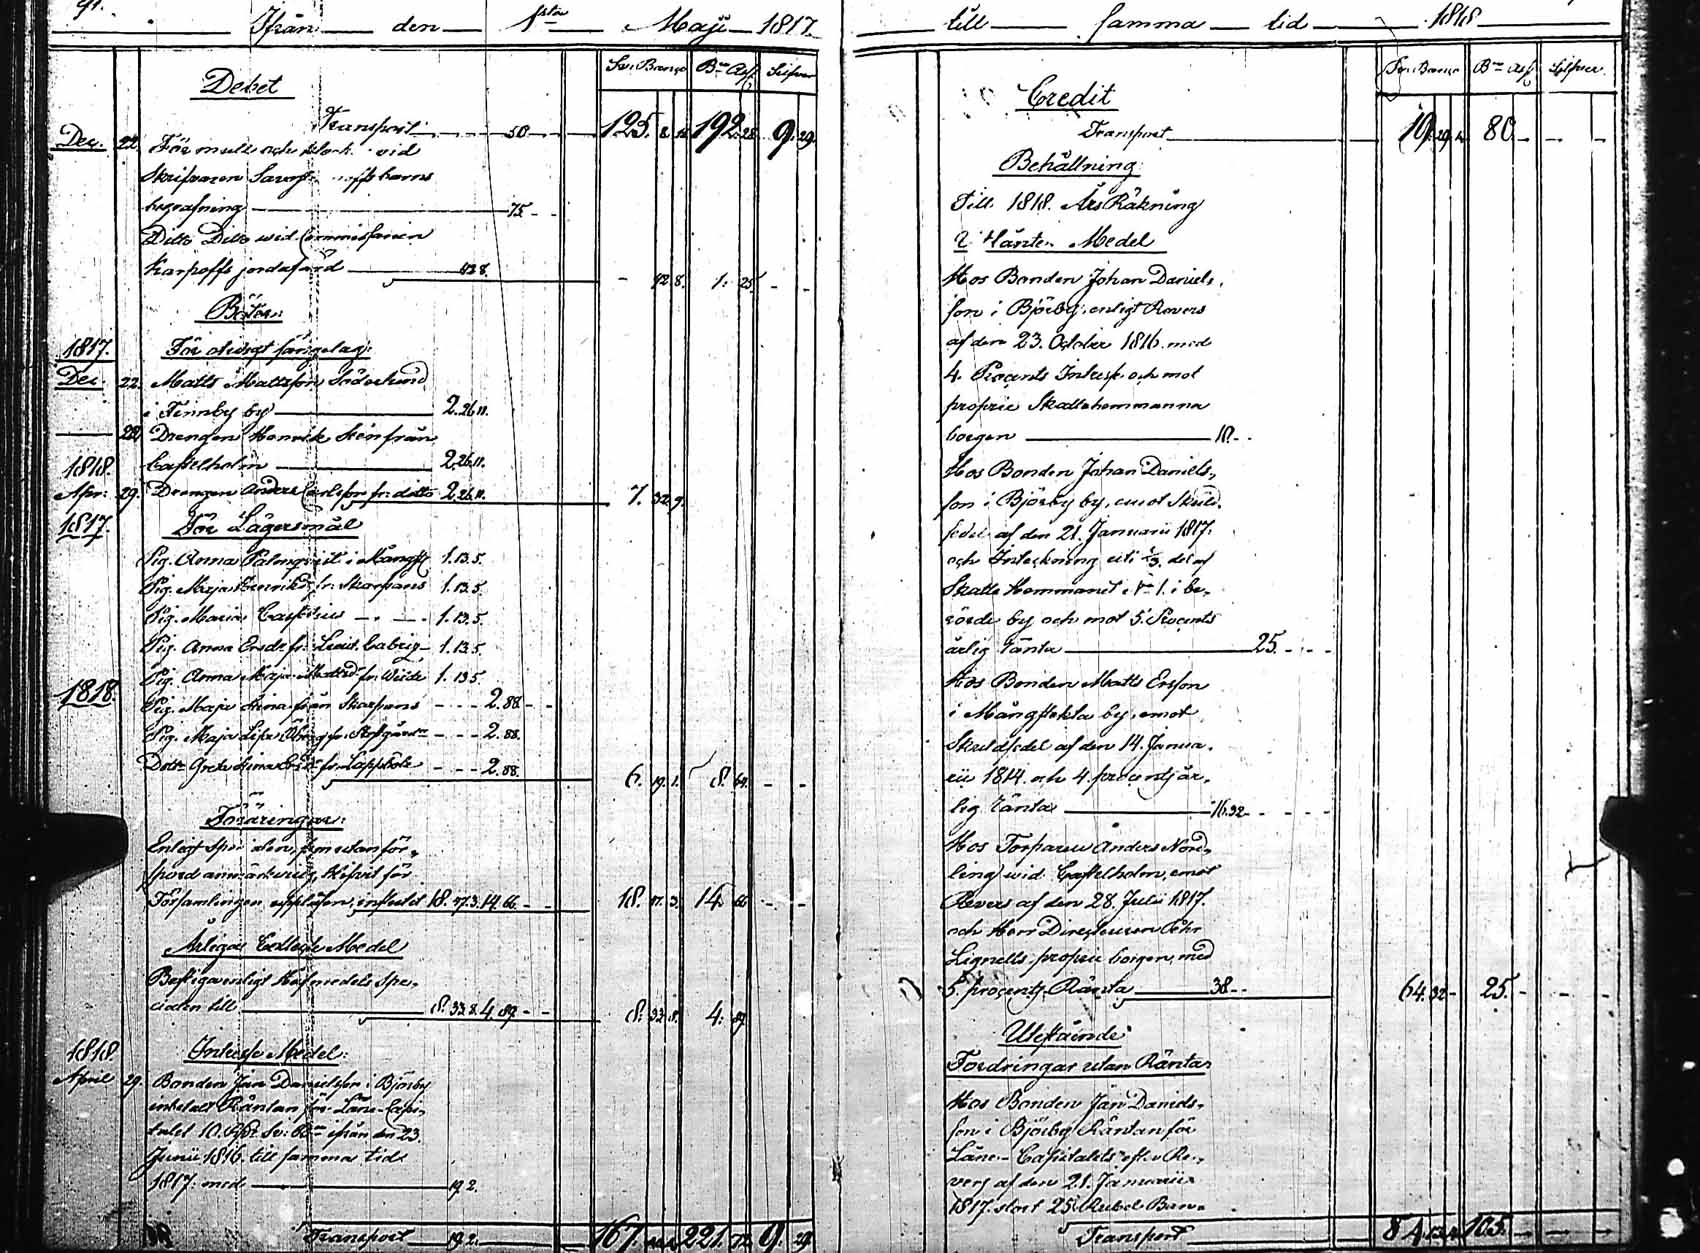 91.
Ifrån den 1sta Maji 1817.
Debet
Sv: Banco Bco Ass. Silfver
Transport 50 125. 8. 192. 28. 9. 29.
Dec. 22. För mull och klock vid
Skrifvaren barns
begrafning 75
Ditto Ditto wid Commissarien
Karpoffs jordafärd 42.8. 42. 8. 1. 25.
Böter:
1817. För olidligt sängelag:
Dec. 22. Matts Mattsson Söderlund
i Finnby by 2.26.11.
22 Drengen Henrik från
Castelholm 2.26.11.
1818.
Apr: 29. Drengen Anders Carlsson fr: ditto 2.26.11. 7. 32. 9.
1817. För Lägersmål
Pig. Anna Palmqvist i Mångst 1.13.5.
Pig. Maja Henriksd. fr. Skarpans 1.13.5.
Pig. Maria 1.13.5.
Pig. Anna Ersdr fr. 1.13.5.
Pig. Anna Maja Mattsd fr. 1.13.5.
1818. Pig. Maja Stina från Skarpans 2.88.
Pig. Maja Lisa Öberg fr. 2.88.
Dottr Greta Stina fr. 2.88. 6. 19. 1. 8. 64.
Föräringar:
Enligt som utanför
spord anmärkning, blifvit för
Församlingen influtit 18.47.3. 14.66 18. 47. 3. 14. 66
Årliga Collect Medel
Bestiga enligt Håfmedels spe-
cialen till 8.33.8. 4.89 8. 33. 8. 4. 89
1818. Intresse Medel:
April 29. Bonden Jan Danielsson i Björby
inbetalt Räntan för Låne-Capi-
talet 10. Rbl. Sv: Bco ifrån den 23.
Junii 1816. till samma tid
1817. med 19.2.
Transport 19.2. 167. 221. 72 9. 29
till samma tid 1818
Credit
Sv: Banco Bco Ass. Silfver
Transport 19. 29. 80
Behållning
Till 1818. Års Räkning
Ränte Medel
Hos Bonden Johan Daniels-
son i Björby, enligt Revers
af den 23. October 1816. med
4. Procents Intresse och mot
proprie Skattehemmanna
borgen 10
Hos Bonden Johan Daniels-
son i Björby by, emot Skuld-
sedel af den 21. Januarii 1817.
och Inteckning uti 1/3. del af
Skatte Hemmanet No 1. i be-
rörde by och mot 5. Procents
årlig ränta 25.
Hos Bonden Matts Ersson
i Mångstekta by, emot
Skuldsedel af den 14. Janua-
rii 1814. och 4. procents år-
lig ränta 16.32
Hos Torparen Anders Nord-
ling wid Castelholm, emot
Revers af den 28. Julii 1817.
och Herr Directeuren Fehr
Lignells proprie borgen, med
5. procents Ränta 38 64. 32 25.
Utestående
Fordringar utan Ränta
Hos Bonden Jan Daniels-
son i Björby Räntan för
Låne-Capitalets eft: Re-
vers af den 21. Januarii
1817. stort 25. Rubel Ban-
Transport 84. 105.